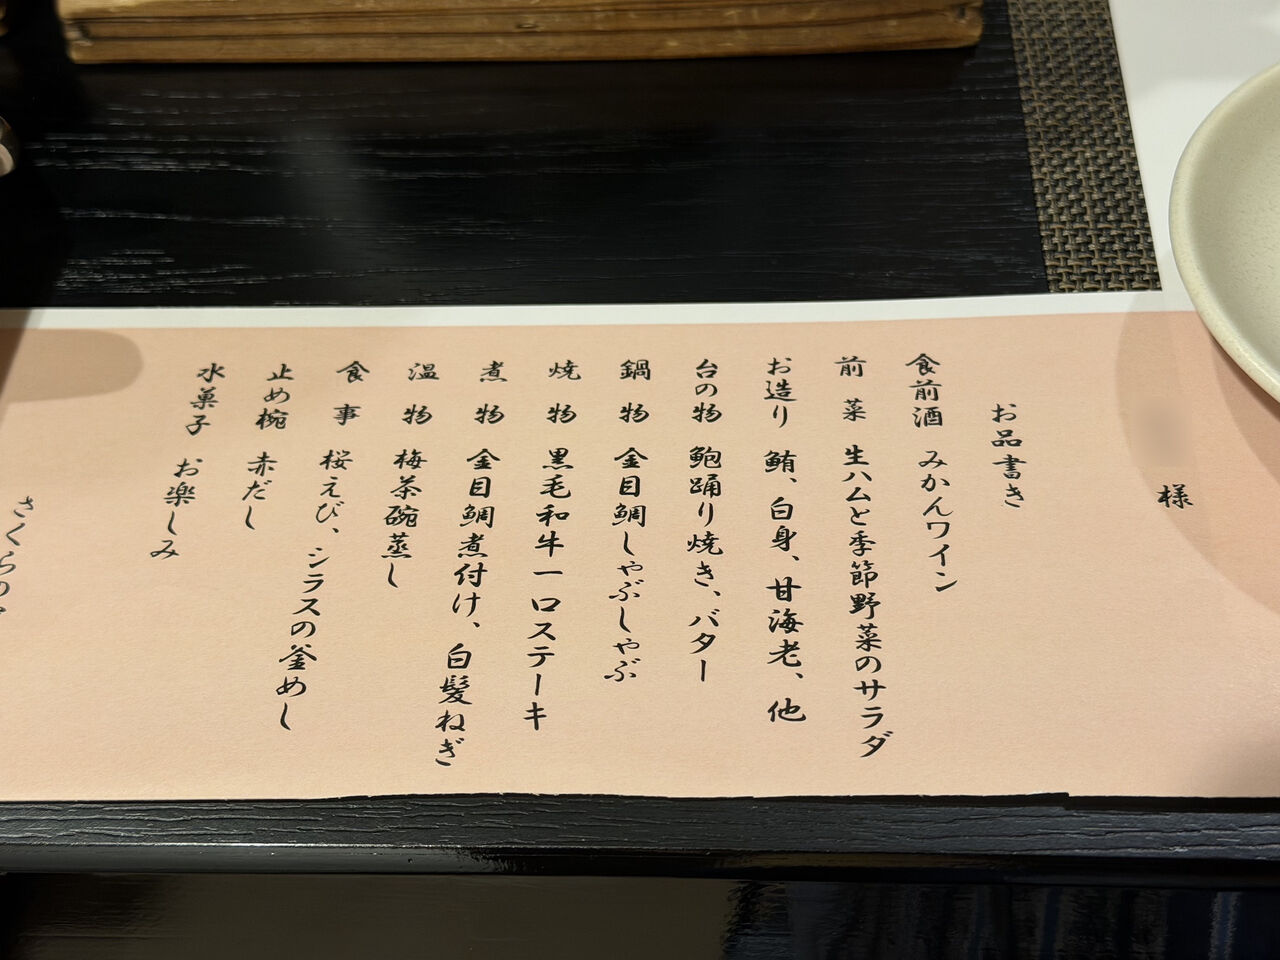 様
お品書き
食前酒 みかんワイン
前菜 生ハムと季節野菜のサラダ
お造り 鮪、白身、甘海老、他
台の物 鮑踊り焼き、バター
鍋物 金目鯛しゃぶしゃぶ
焼物 黒毛和牛一口ステーキ
煮物 金目鯛煮付け、白髪ねぎ
温物 梅茶碗蒸し
食事 桜えび、シラスの釜めし
止め椀 赤だし
水菓子 お楽しみ
さくらの